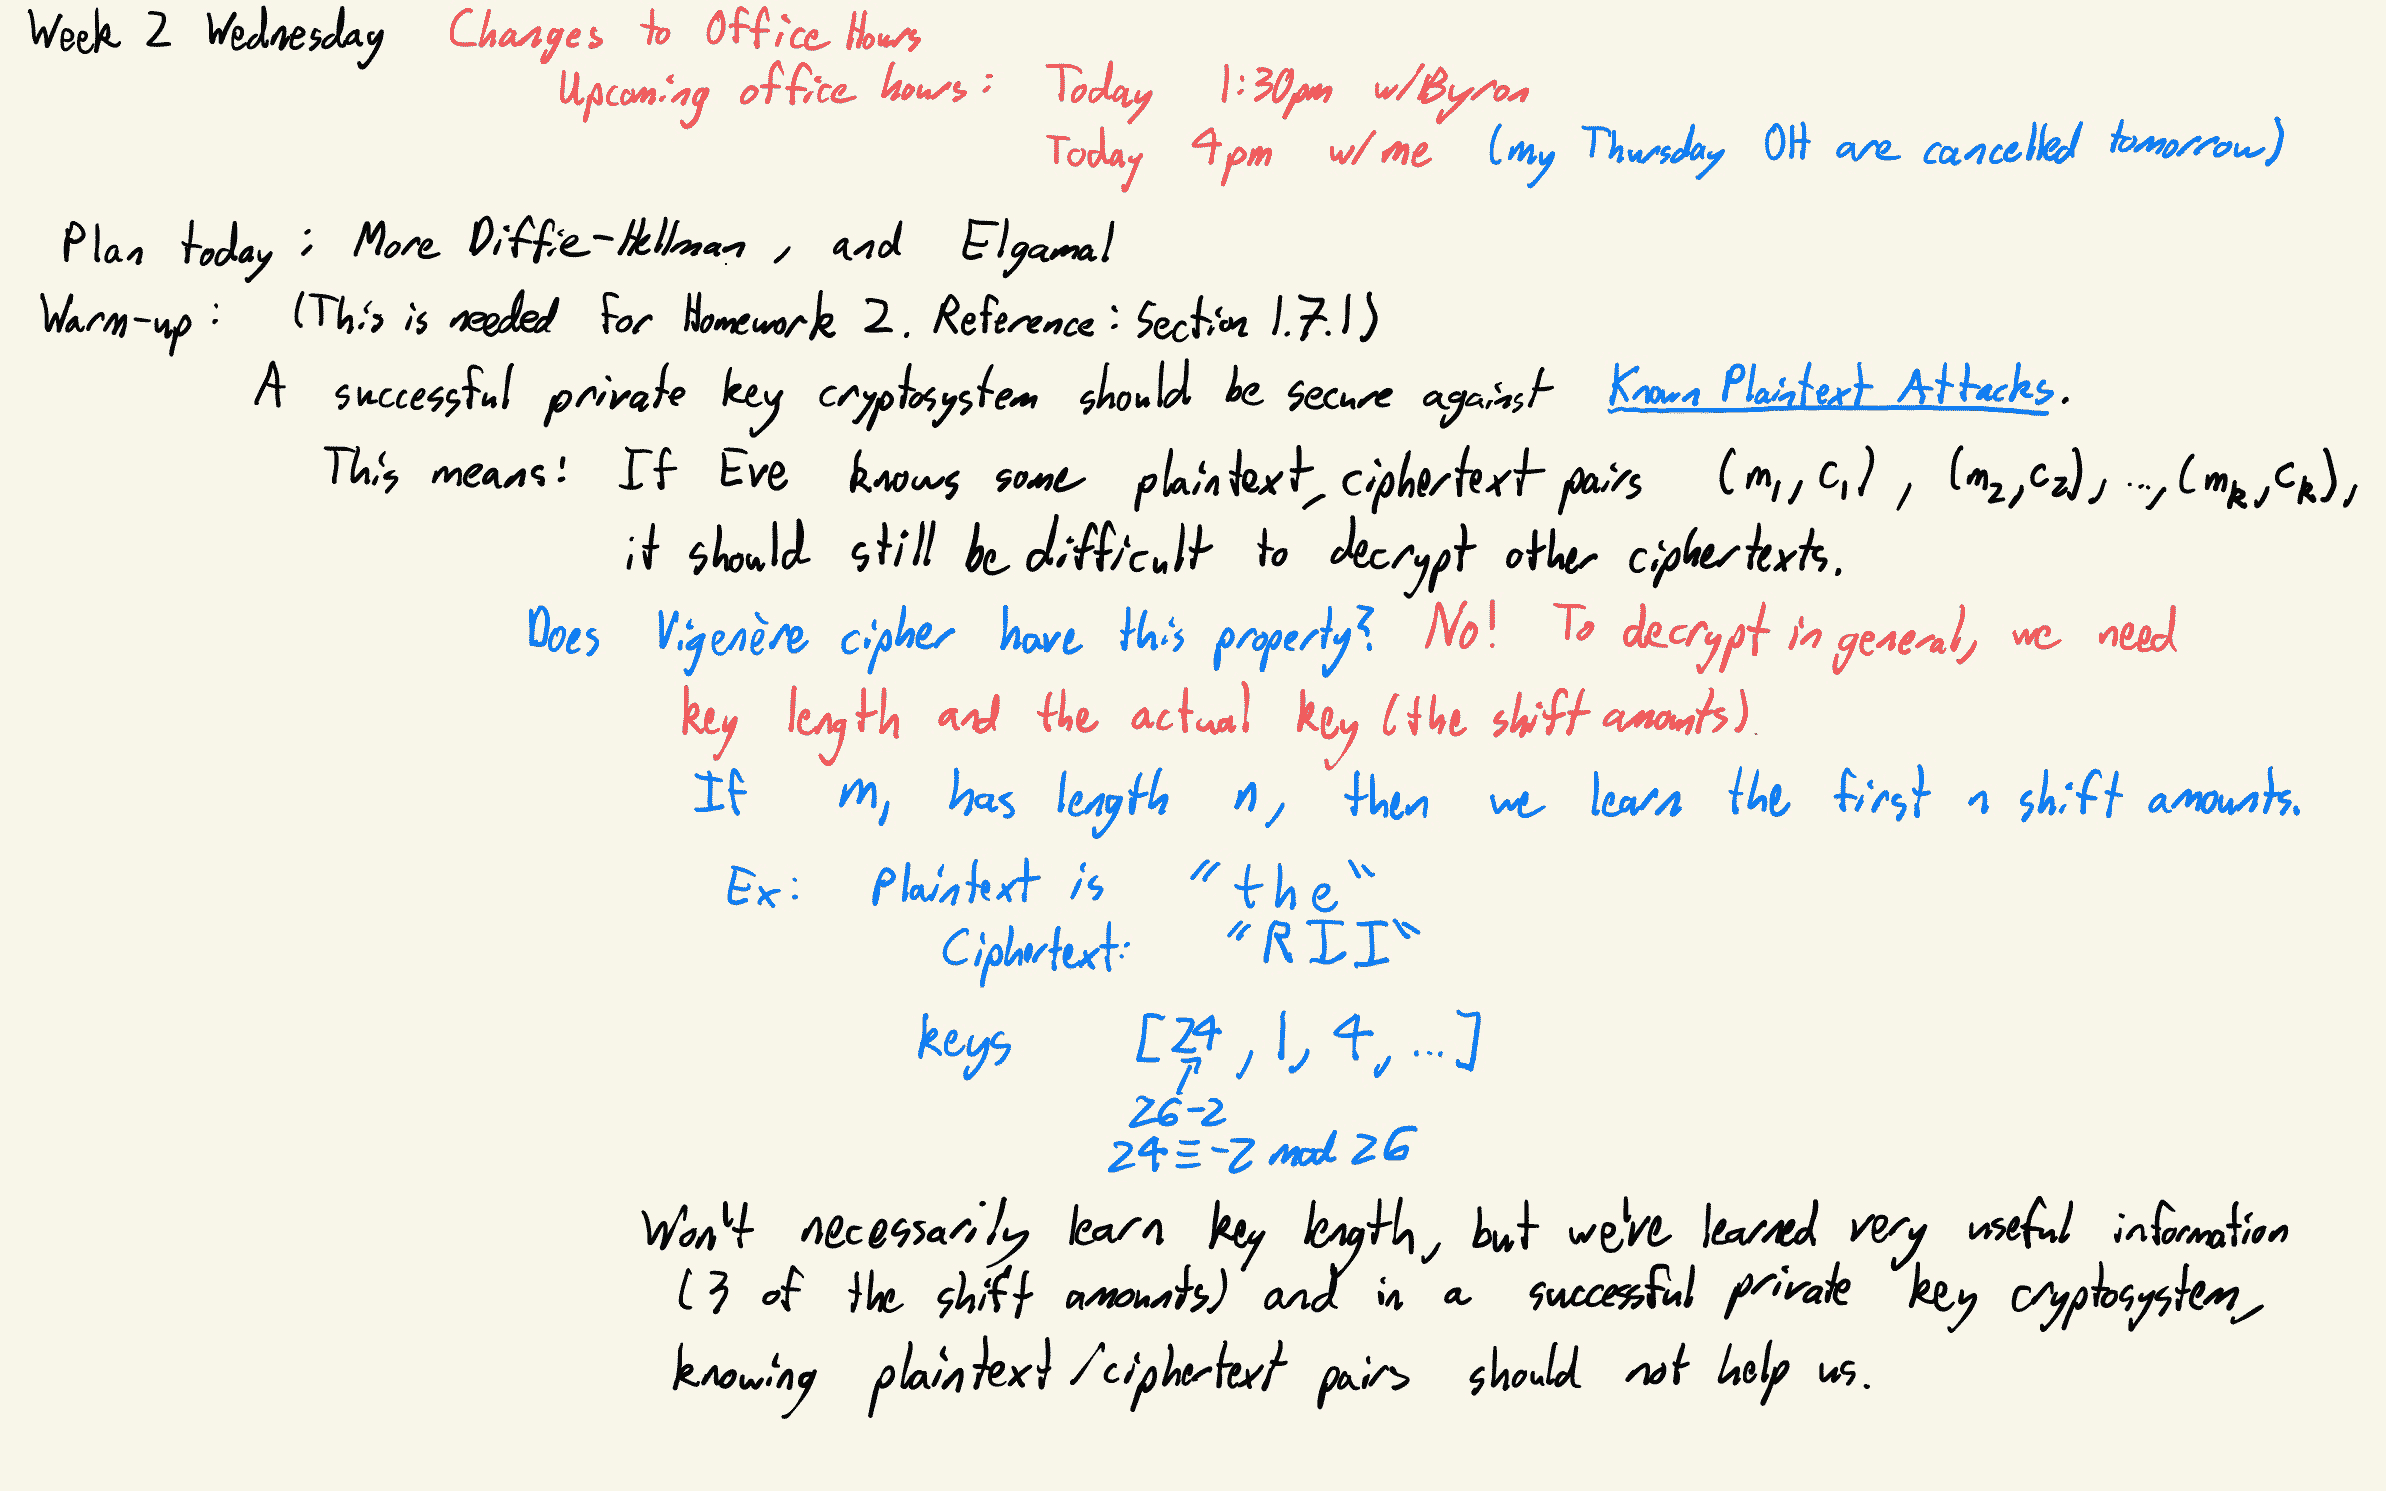 Week 2 Wednesday Changes to Office Hours
Upcoming office hours: Today 1:30pm w/Byron
Today 4pm w/me (my Thursday OH are cancelled tomorrow)
Plan today: More Diffie-Hellman, and Elgamal
Warm-up: (This is needed for Homework 2. Reference: Section 1.7.1)
A successful private key cryptosystem should be secure against Known Plaintext Attacks.
This means: If Eve knows some plaintext, ciphertext pairs (m₁, c₁), (m₂, c₂), ..., (mₖ, cₖ),
it should still be difficult to decrypt other ciphertexts.
Does Vigenère cipher have this property? No! To decrypt in general, we need
key length and the actual key (the shift amounts).
If m₁ has length n, then we learn the first n shift amounts.
Ex: Plaintext is "the"
Ciphertext: "RII"
keys [24, 1, 4, ...]
26-2
24≡-2 mod 26
Won't necessarily learn key length, but we've learned very useful information
(3 of the shift amounts) and in a successful private key cryptosystem,
knowing plaintext/ciphertext pairs should not help us.